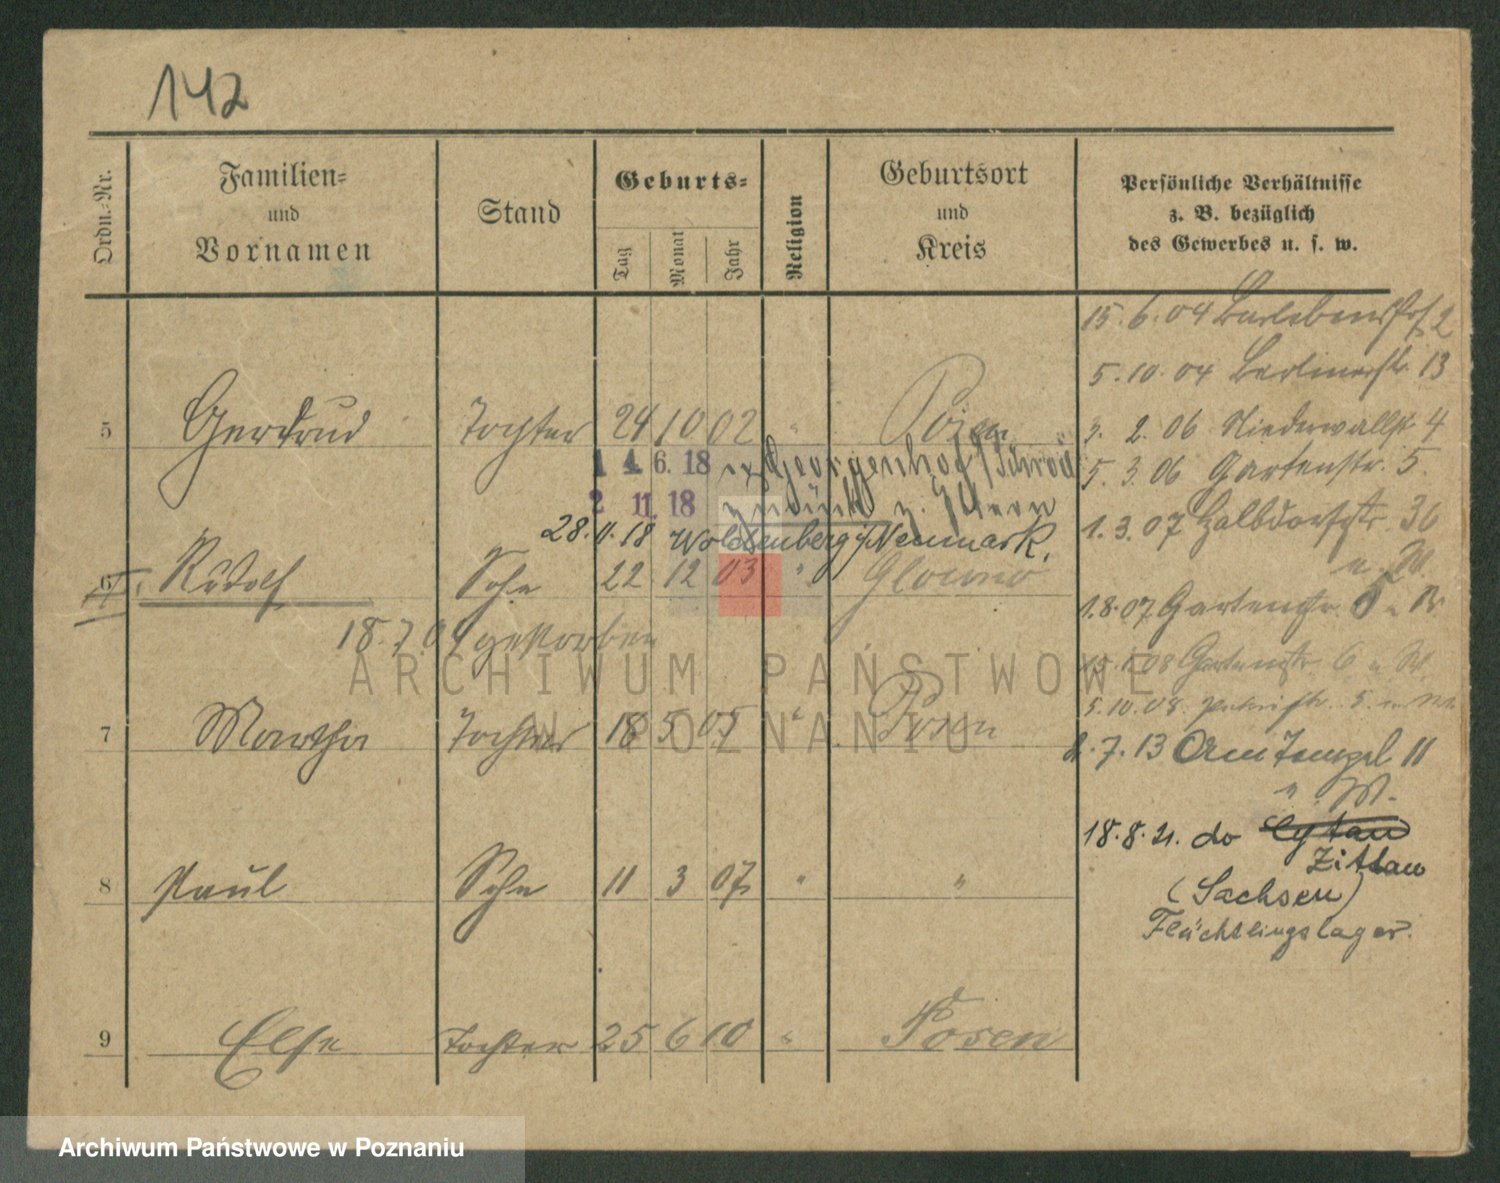 142
Ordn.-Nr.
Familien-
und
Vornamen
Stand
Geburts-
Tag
Monat
Jahr
Religion
Geburtsort
und
Kreis
Persönliche Verhältnisse
z. B. bezüglich
des Gewerbes u. s. w.
15. 6. 04 2
5. 10. 04 Berlinerstr. 13
5 Gertrud Tochter 24 10 02 " Posen
3. 2. 06 Niederwallstr. 4
14. 6. 18 Georgenhof
5. 3. 06 Gartenstr. 5.
2 11. 18
1. 3. 07 Halbdorfstr. 36
28. 11. 18 Woldenberg i/Neumark.
u. W.
6 Rudolf Sohn 22 12 03 " Glowno
1. 8. 07 Gartenstr.
18. 7. 04 gestorben
Gartenstr. 6 u. W.
ARCHIWUM PAŃSTWOWE
W POZNANIU
5. 10. 08.
7 Martha Tochter 18 5 05 " Posen
7. 13 Am Tempel 11
" W.
18. 8. 21. do
Zittau
8 Paul Sohn 11 3 07 " "
(Sachsen)
Flüchtlingslager.
9 Else Tochter 25 6 10 " Posen
Archiwum Państwowe w Poznaniu